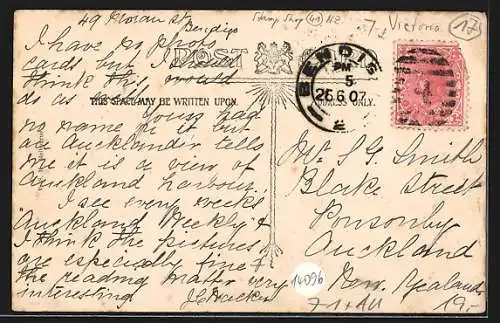 49 Moran St
Bendigo
I have no photo
cards but I should
think this would
do as well. Yours had
no name on it but
an Aucklander tells
me it is a view of
Auckland harbour.
I see every weeks
"Auckland Weekly" &
I think the pictures
are especially fine &
the reading matter very
interesting
POST
THIS SPACE MAY BE WRITTEN UPON.
ADDRESS ONLY.
Stamp Shop 41 NZ
7/2 Victoria
17
BENDIGO
PM
5
26.6.07
Mr. S G Smith
Blake Street
Ponsonby
Auckland
New Zealand
14096
19.-